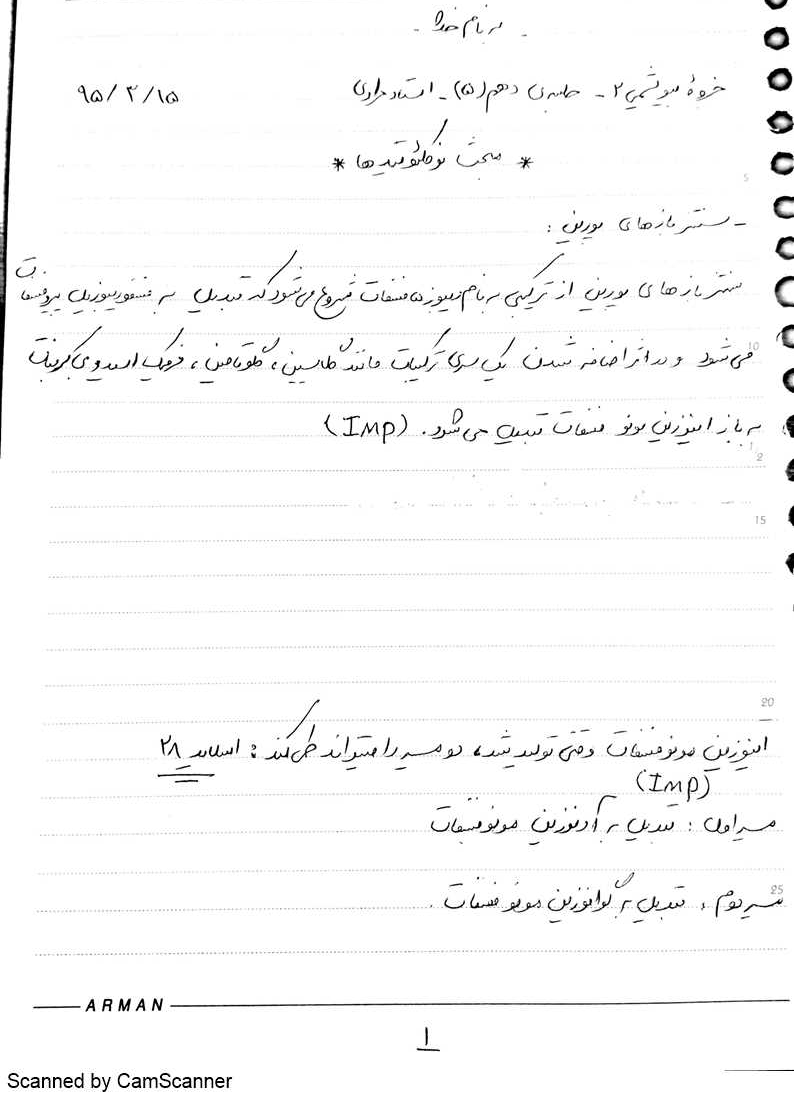 به نام خدا
جزوهٔ بیوشیمی ۲ - جلسه‌ی دهم (۵) - استاد مرادی ۹۵/۳/۱۵
* مبحث نوکلئوتیدها *
- سنتز بازهای پورین :
سنتز بازهای پورین از ترکیبی به نام ریبوز ۵ فسفات شروع می‌شود که تبدیل به فسفوریبوزیل پیروفسفات
می‌شود و در اثر اضافه شدن یک سری ترکیبات مانند گلایسین، گلوتامین، فرمیک اسید و بی‌کربنات
به باز اینوزین مونو فسفات تبدیل می‌شود. (IMP)
5
10
15
20
اینوزین مونوفسفات وقتی تولید شد، دو مسیر را میتواند طی کند : اسلاید ۲۸
(IMP)
مسیر اول : تبدیل به آدنوزین مونوفسفات
25
مسیر دوم : تبدیل به گوانوزین مونوفسفات.
ARMAN
۱
Scanned by CamScanner